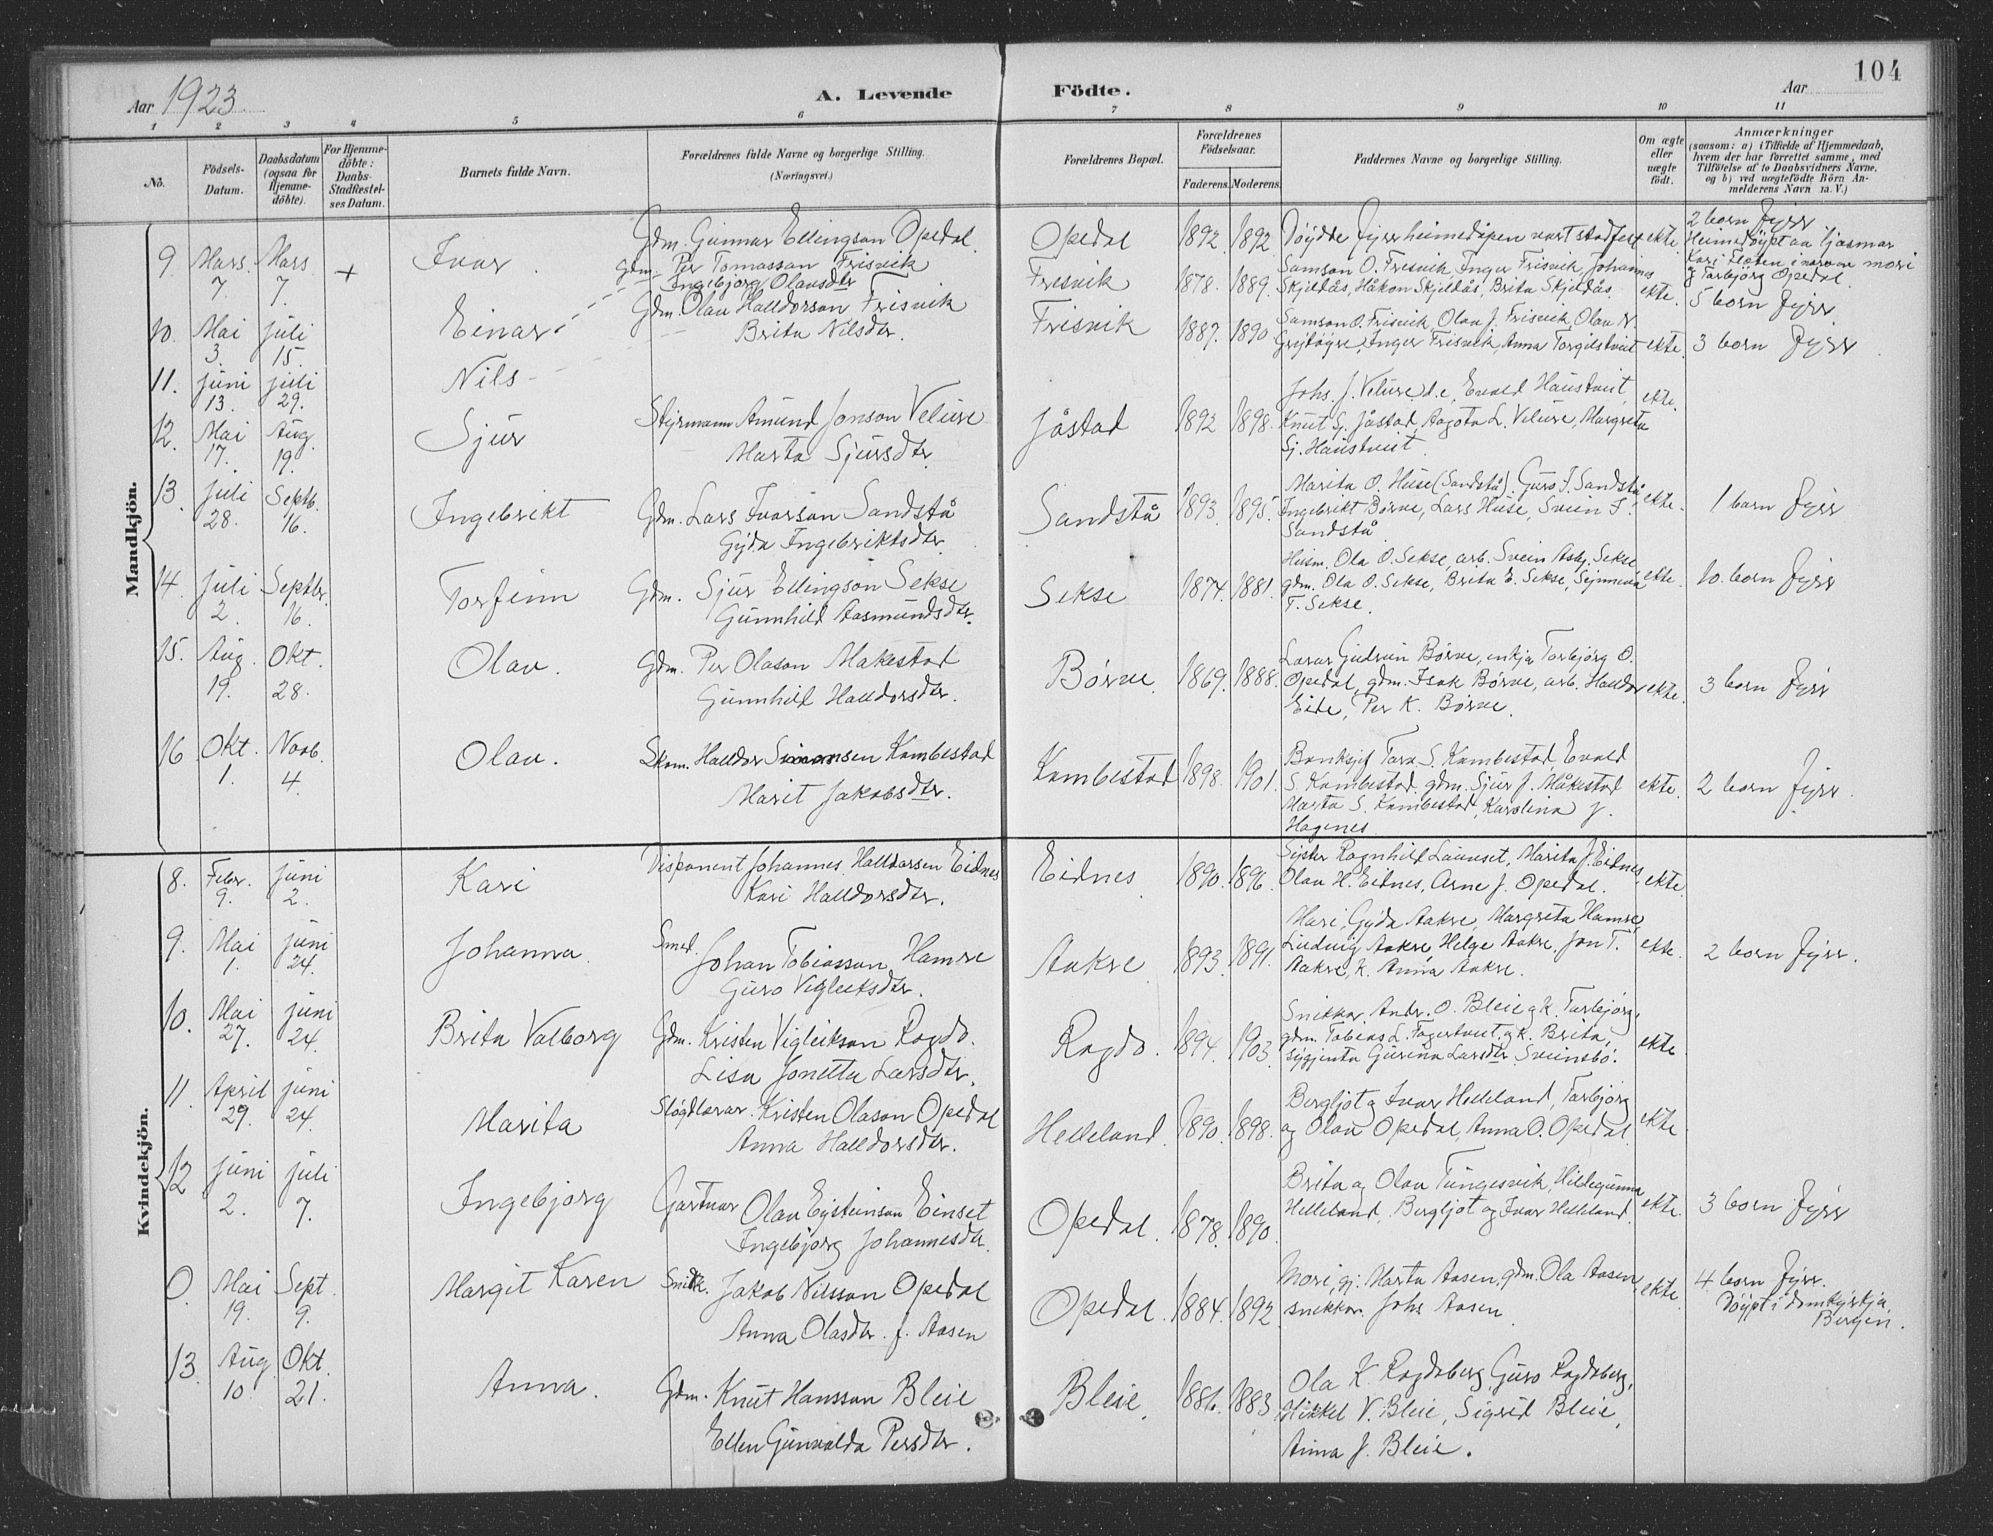 104
Aar 1923
A. Levende Födte.
Aar
1 2 3 4 5 6 7 8 9 10 11
No.
Födsels-Datum.
Daabsdatum (ogsaa for Hjemme-döbte).
For Hjemme-döbte: Daabs-Stadfæstel-ses Datum.
Barnets fulde Navn.
Forældrenes fulde Navne og borgerlige Stilling. (Næringsvei.)
Forældrenes Bopæl.
Forældrenes Födselsaar.
Faderens. Moderens.
Faddernes Navne og borgerlige Stilling.
Om ægte eller uægte födt.
Anmærkninger
(saasom: a) i Tilfælde af Hjemmedaab, hvem der har forrettet samme, med Tilföielse af to Daabsvidners Navne, og b) ved uægtefödte Börn An-melderens Navn m. V.)
Mandkjön.
9 Mars 7. Mars 7. + Ivar.
Gdm. Gunnar Ellingson Opedal.
Opedal 1892 1892
Döydde fyrr heimedåpen vart stadfest ekte
2 born fyrr
Heimedöypt av
Kari
og Torbjörg Opedal.
10. Mai 3. Juli 15. Einar
Gdm. Per Tomasson Frisvik
Ingebjorg Olavsdtr
Frisvik 1878. 1889.
Samson O. Frisvik, Inger Frisvik, Johannes
Skjeldås, Håkon Skjeldås, Brita Skjeldås ekte.
5 born fyrr.
11. Juni 13. Juli 29. Nils
Gdm. Olav Halldorson Frisvik
Brita Nilsdtr.
Frisvik 1887. 1890
Samson O. Frisvik, Olav J. Frisvik, Olav N.
Inger Frisvik, Anna Torgilstveit ekte.
3 born fyrr.
12. Mai 17. Aug. 19. Sjur
Styrmann Amund Jonson Velure
Marta Sjursdtr.
Jåstad 1892 1898.
Johs. J. Velure d.e, Evald Haustveit,
Knut Sj. Jåstad, Aagota L. Velure, Margreta
Sj. Haustveit. ekte.
13. Juli 28. Septb. 16. Ingebrikt
Gdm. Lars Ivarson Sandstå
Gyda Ingebriktsdtr.
Sandstå 1893. 1895.
Marita O. Huse (Sandstå), Guro I. Sandstå
Ingebrikt Börve, Lars Huse, Svein I.
Sandstå ekte.
1 born fyrr
14. Juli 2. Septbr. 16. Torfinn
Gdm. Sjur Ellingson Sekse
Gunnhild Aasmundsdtr.
Sekse 1874. 1881.
Husm. Ola O. Sekse, arb. Svein Asbj. Sekse
gdm. Ola O. Sekse, Brita E. Sekse, Synneva
T. Sekse. ekte.
10. born fyrr
15. Aug. 19. Okt. 28. Olav.
Gdm. Per Olason Måkestad
Gunnhild Halldorsdtr.
Börve. 1869. 1888.
Lærar Gudrun Börve, enkja Torbjörg O.
Opedal, gdm. Isak Börve, arb. Halldor
Eide, Per K. Börve. ekte
3 born fyrr
16 Okt. 1. Novb. 4. Olav.
Skom. Halldor Simonsen Kambestad
Marit Jakobsdtr.
Kambestad 1898. 1901.
Tora S. Kambestad, Evald
S. Kambestad, gdm. Sjur J. Måkestad
Marta S. Kambestad, Karolina J.
Hagenes. ekte.
2 born fyrr.
Kvindekjön.
8. Febr. 9. Juni 2. Kari
Disponent Johannes Halldorsen Eidnes
Kari Halldorsdtr.
Eidnes 1890. 1896.
Syster Ragnhild Launset, Marita J. Eidnes,
Olav H. Eidnes, Arne J. Opedal. ekte.
9. Mai 1. Juni 24. Johanna
Smed. Johan Tobiasson Hamre
Guro Vigleiksdtr.
Aakre 1893. 1891.
Mari, Gyda Aakre, Margreta Hamre,
Ludvig Aakre, Helge Aakre, Jon T.
Aakre, k. Anna Aakre. ekte.
2 born fyrr.
10. Mai 27. Juni 24. Brita Valborg
Gdm. Kristen Vigleikson Ragde.
Lisa Jonetta Larsdtr.
Ragde. 1894. 1903.
Snikkar Andr. O. Bleie g k. Torbjörg,
gdm. Tobias L. Fagertveit g k. Brita,
sygjenta Gurina Larsdtr Sveinsbö. ekte
11. April 29. Juni 24. Marita
Slögdlærar. Kristen Olason Opedal
Anna Halldorsdtr.
Helleland. 1890. 1898.
Bergljot g Ivar Helleland, Torbjörg
og Olav Opedal, Anna O. Opedal. ekte
12 Juni 2. Juli 7. Ingebjorg
Gartnar Olav Eysteinson Einset
Ingebjorg Johannesdtr.
Opedal. 1878. 1890.
Brita og Olav Tungesvik, Hildegunna
Helleland, Bergljot og Ivar Helleland. ekte.
3 born fyrr
0. Mai 19. Sept. 9. Margit Karen
Snikk. Jakob Nilsson Opedal
Anna Olasdtr. f. Aasen
Opedal. 1884. 1892
Mori, gj. Marta Aasen, gdm. Ola Aasen,
snikkar. Johs Aasen ekte.
4 born fyrr.
Döypt i domkyrkja,
Bergen.
13 Aug. 10. Okt. 21. Anna.
Gdm. Knut Hansson Bleie
Ellen Gunvalda Persdtr.
Bleie. 1886. 1883
Ola K. Ragdeberg, Guro Ragdeberg,
Mikkel V. Bleie, Sigrid Bleie,
Anna J. Bleie.